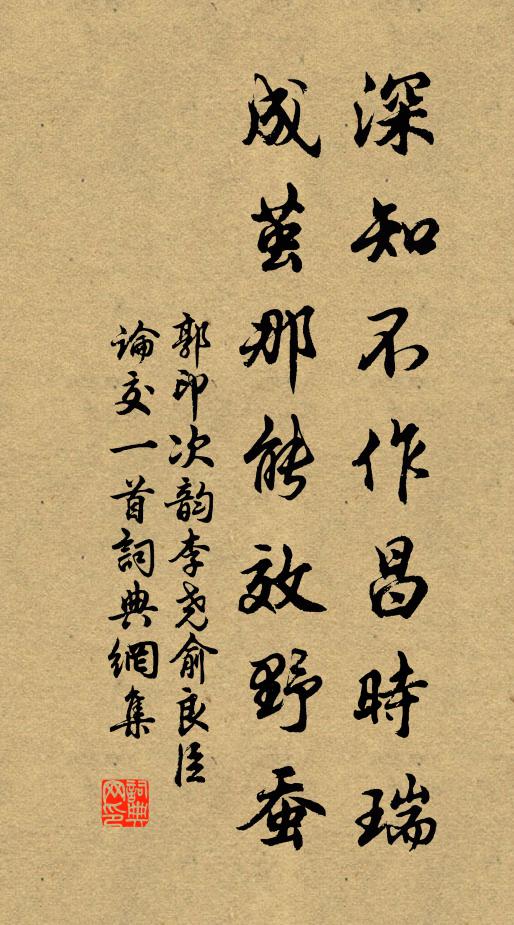 深知不作昌时瑞
成茧那能效野蚕
郭印次韵李尧俞良臣
论交一首詞典網集
詞典网印